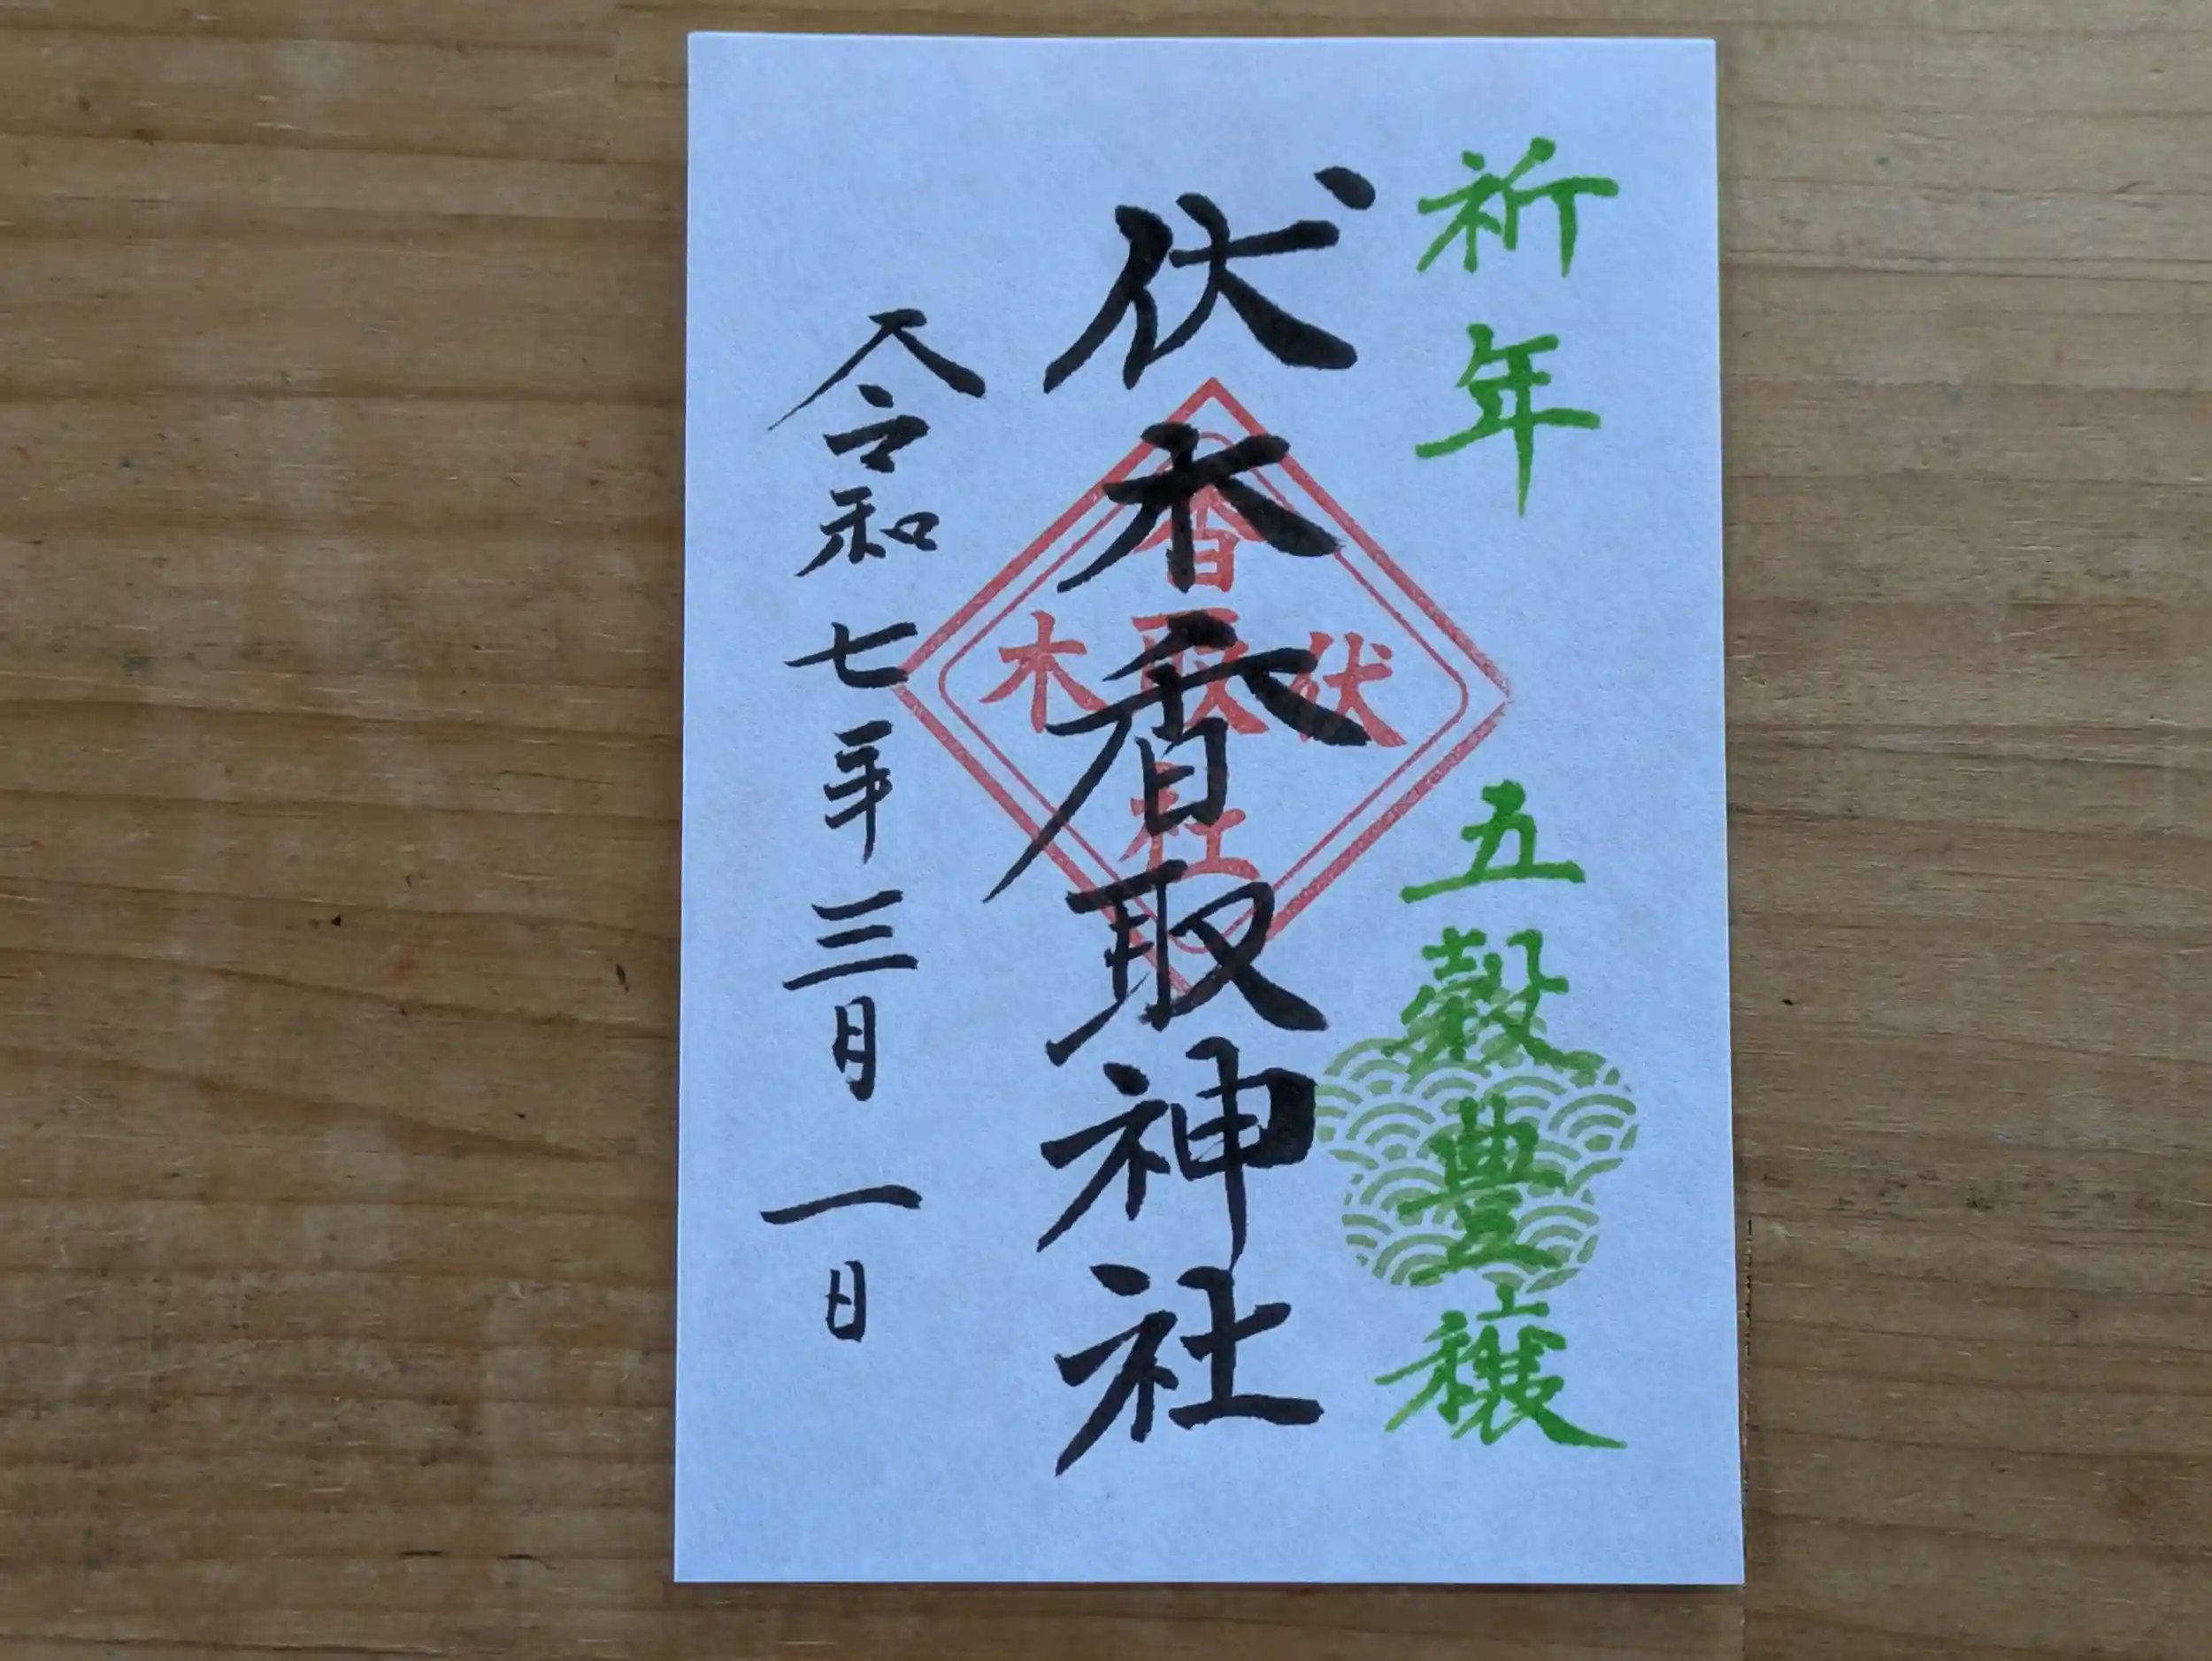 祈年 五穀豊穣
伏木香取神社
香取社
伏木
令和七年三月一日